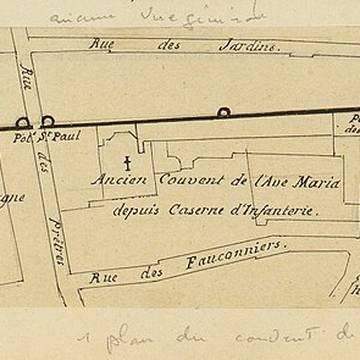 ancienne Vue générale
Rue des Jardins.
Rue
des
Prêtres
Pote. St Paul
Ancien Couvent de l'Ave Maria
depuis Caserne d'Infanterie.
Rue des Fauconniers.
1 plan du couvent de